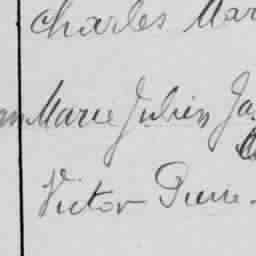 Charles Mar
Marie Julien Ja
Victor Pierre